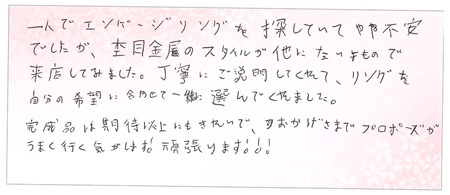 一人でエンゲージリングを探していてやや不安
でしたが、杢目金屋のスタイルが他にないもので
来店してみました。丁寧にご説明してくれて、リングを
自分の希望に合わせて一緒に選んでくれました。
完成品は期待以上にもきれいで、おかげさまでプロポーズが
うまく行く気がします!頑張ります!!!